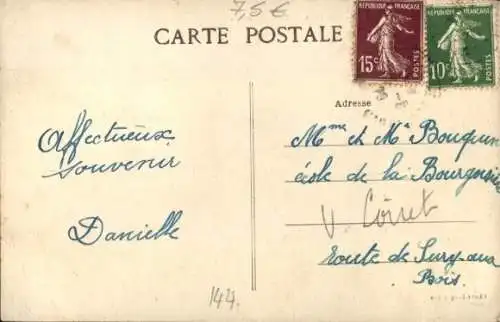 7,5 €
CARTE POSTALE
RÉPUBLIQUE FRANÇAISE
15c
POSTES
RÉPUBLIQUE FRANÇAISE
10c
POSTES
Adresse
Affectueux
souvenir
Danielle
Mme et Mr Bouquin
école de la Bourgonnière
V. Coiret
Route de Sury aux
Bois
144